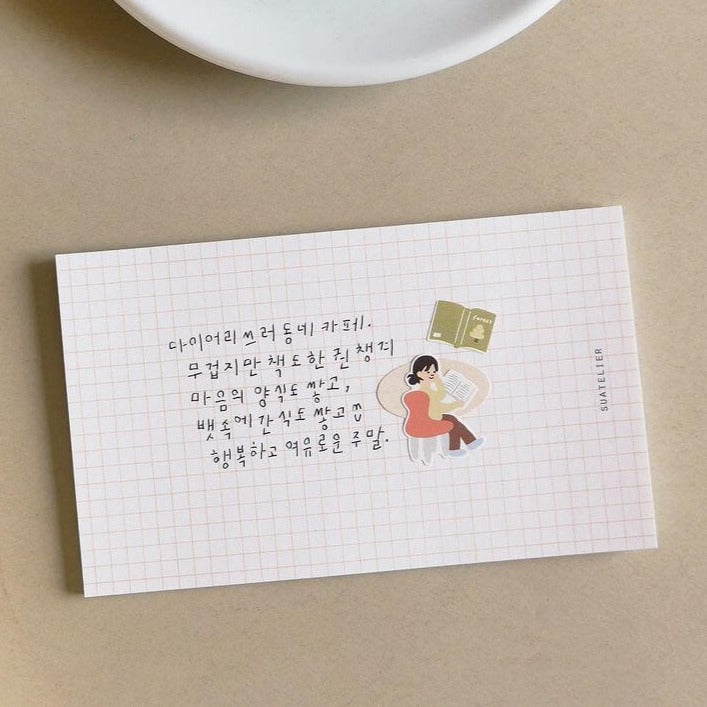 다이어리쓰러 동네 카페.
무겁지만 책도 한 권 챙겨
마음의 양식도 쌓고,
뱃속에 간식도 쌓고
행복하고 여유로운 주말.
forest
SUATELIER